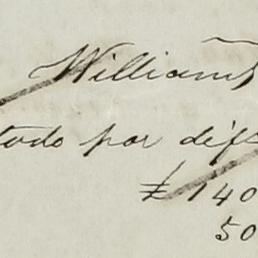 Williams
todo por dife
£ 140
50